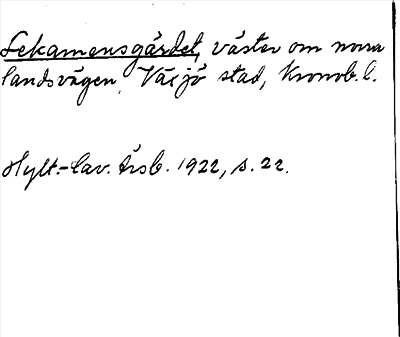 Lekamensgärdet, väster om norra
landsvägen, Växjö stad, Kronob. l.
Hylt.-Cav. Årsb. 1922, s. 22.